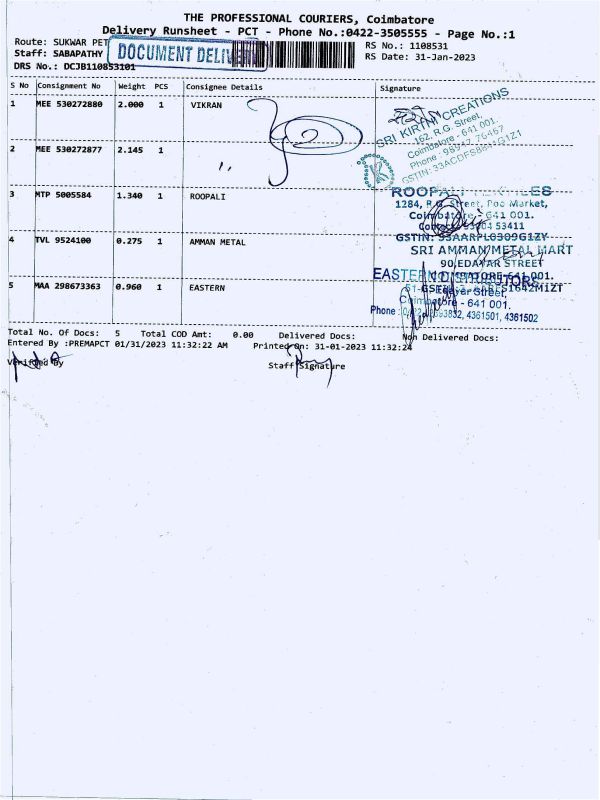 THE PROFESSIONAL COURIERS, Coimbatore
Delivery Runsheet - PCT - Phone No.:0422-3505555 - Page No.:1
Route: SUKWAR PET
RS No.: 1108531
Staff: SABAPATHY
DOCUMENT DELIV
RS Date: 31-Jan-2023
DRS No.: DCJB110853101
S No Consignment No Weight PCS Consignee Details Signature
1 MEE 530272880 2.000 1 VIKRAN
SRI KIRTHI CREATIONS
162, R.G. Street,
Coimbatore - 641 001.
Phone
GSTIN:
2 MEE 530272877 2.145 1 ,,
3 MTP 5005584 1.340 1 ROOPALI
ROOPALI
1284, R.G. Street, Poo Market,
Coimbatore - 641 001.
53411
GSTIN:
4 TVL 9524100 0.275 1 AMMAN METAL
SRI AMMAN METAL MART
90, EDAYAR STREET
COIMBATORE-641 001.
5 MAA 298673363 0.960 1 EASTERN
EASTERN DISTRIBUTORS
Street,
Coimbatore - 641 001.
Phone : 4361501, 4361502
Total No. Of Docs: 5 Total COD Amt: 0.00 Delivered Docs: Non Delivered Docs:
Entered By :PREMAPCT 01/31/2023 11:32:22 AM Printed On: 31-01-2023 11:32:24
Verified By Staff Signature